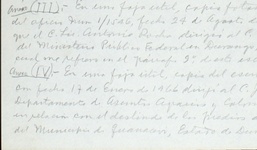 Anexo (III) - En una foja útil, copia fotos
del oficio Num 1/1526, fecha 29 de Agosto d
que el C. Lic. Antonio Rocha dirige al C.
del Ministerio Público Federal en Durango,
cual me refiero en el párrafo 3º de este
Anexo (IV) - En una foja útil, copia del
con fecha 17 de Enero de 1966 dirigí al C. J
Departamento de Asuntos Agrarios y Colon
en relación con el deslinde de los Predios
del Municipio de Guanaceví, Estado de Du